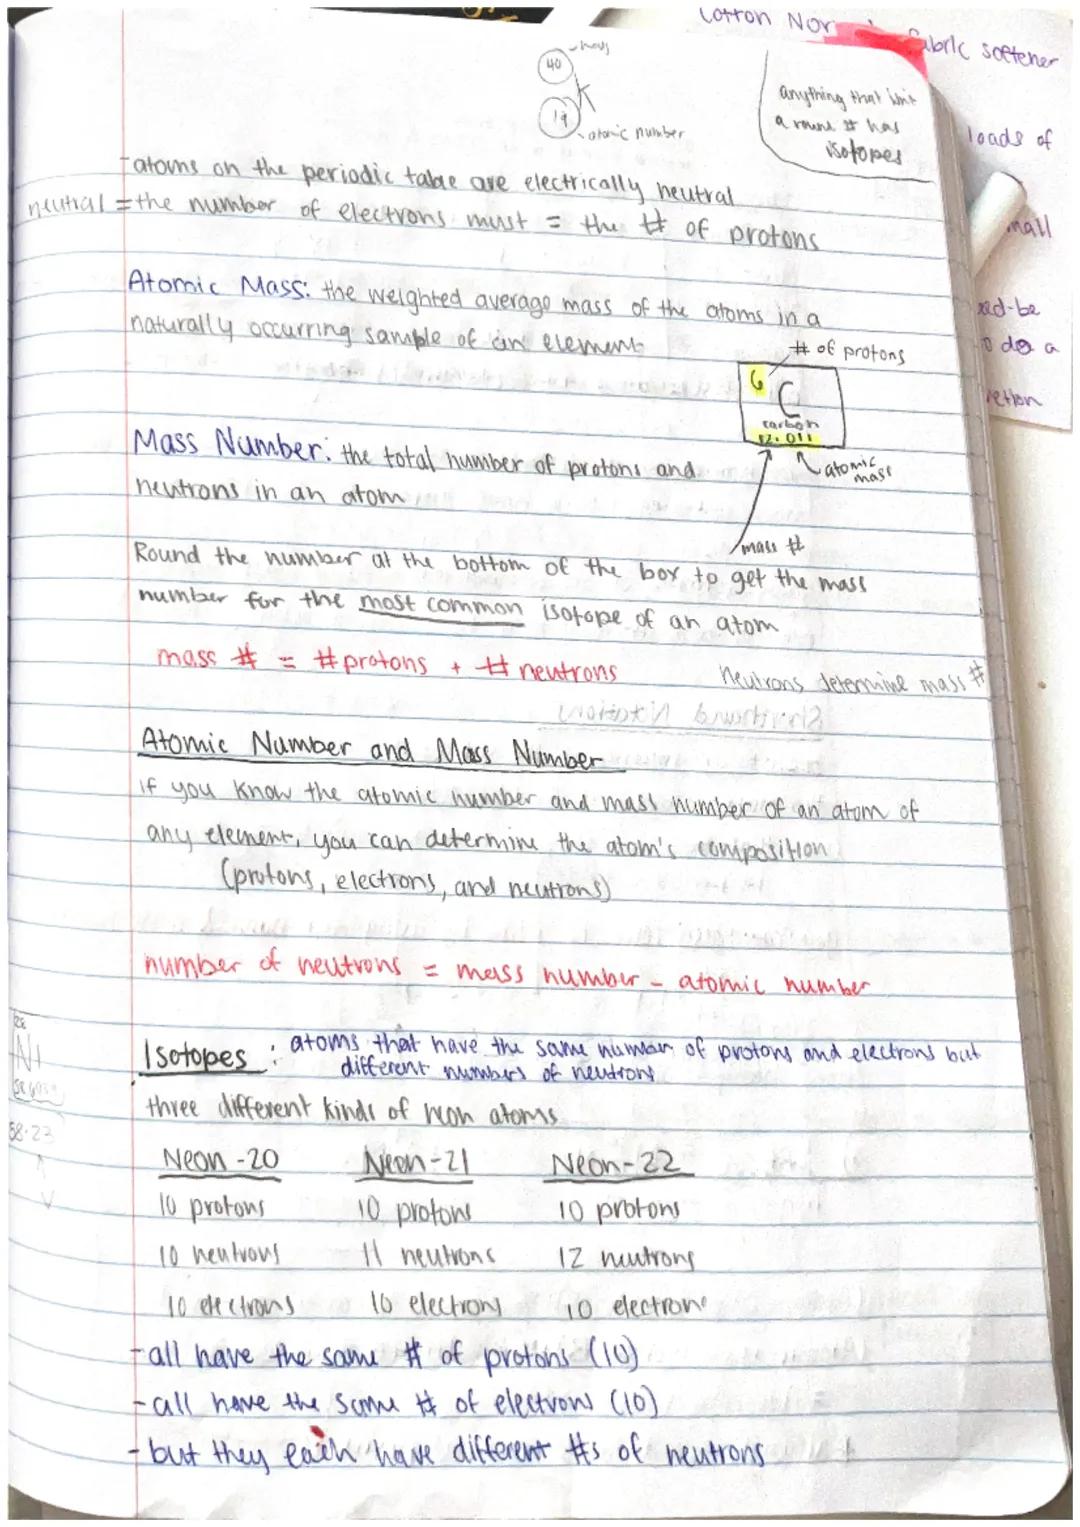 Cotton Nor
fabric softener
loads of
mall
xed-be
do a
mass
40
K
19
atomic number
anything that isn't
a round # has
isotopes
-atoms on the periodic table are electrically neutral
neutral = the number of electrons must = the # of protons
Atomic Mass: the weighted average mass of the atoms in a
naturally occurring sample of an element
# of protons
6
C
carbon
12.011
atomic
mass
mass #
Mass Number: the total number of protons and
neutrons in an atom
Round the number at the bottom of the box to get the mass
number for the most common isotope of an atom
mass # = # protons + # neutrons
Neutrons determine mass #
Atomic Number and Mass Number
if you know the atomic number and mass number of an atom of
any element, you can determine the atom's composition
(protons, electrons, and neutrons)
number of neutrons = mass number - atomic number
Isotopes : atoms that have the same number of protons and electrons but
different numbers of neutrons
28
Ni
three different kinds of neon atoms
Neon-20 Neon-21 Neon-22
10 protons 10 protons 10 protons
10 neutrons 11 neutrons 12 neutrons
10 electrons 10 electrons 10 electrons
-all have the same # of protons (10)
-all have the same # of electrons (10)
-but they each have different #s of neutrons